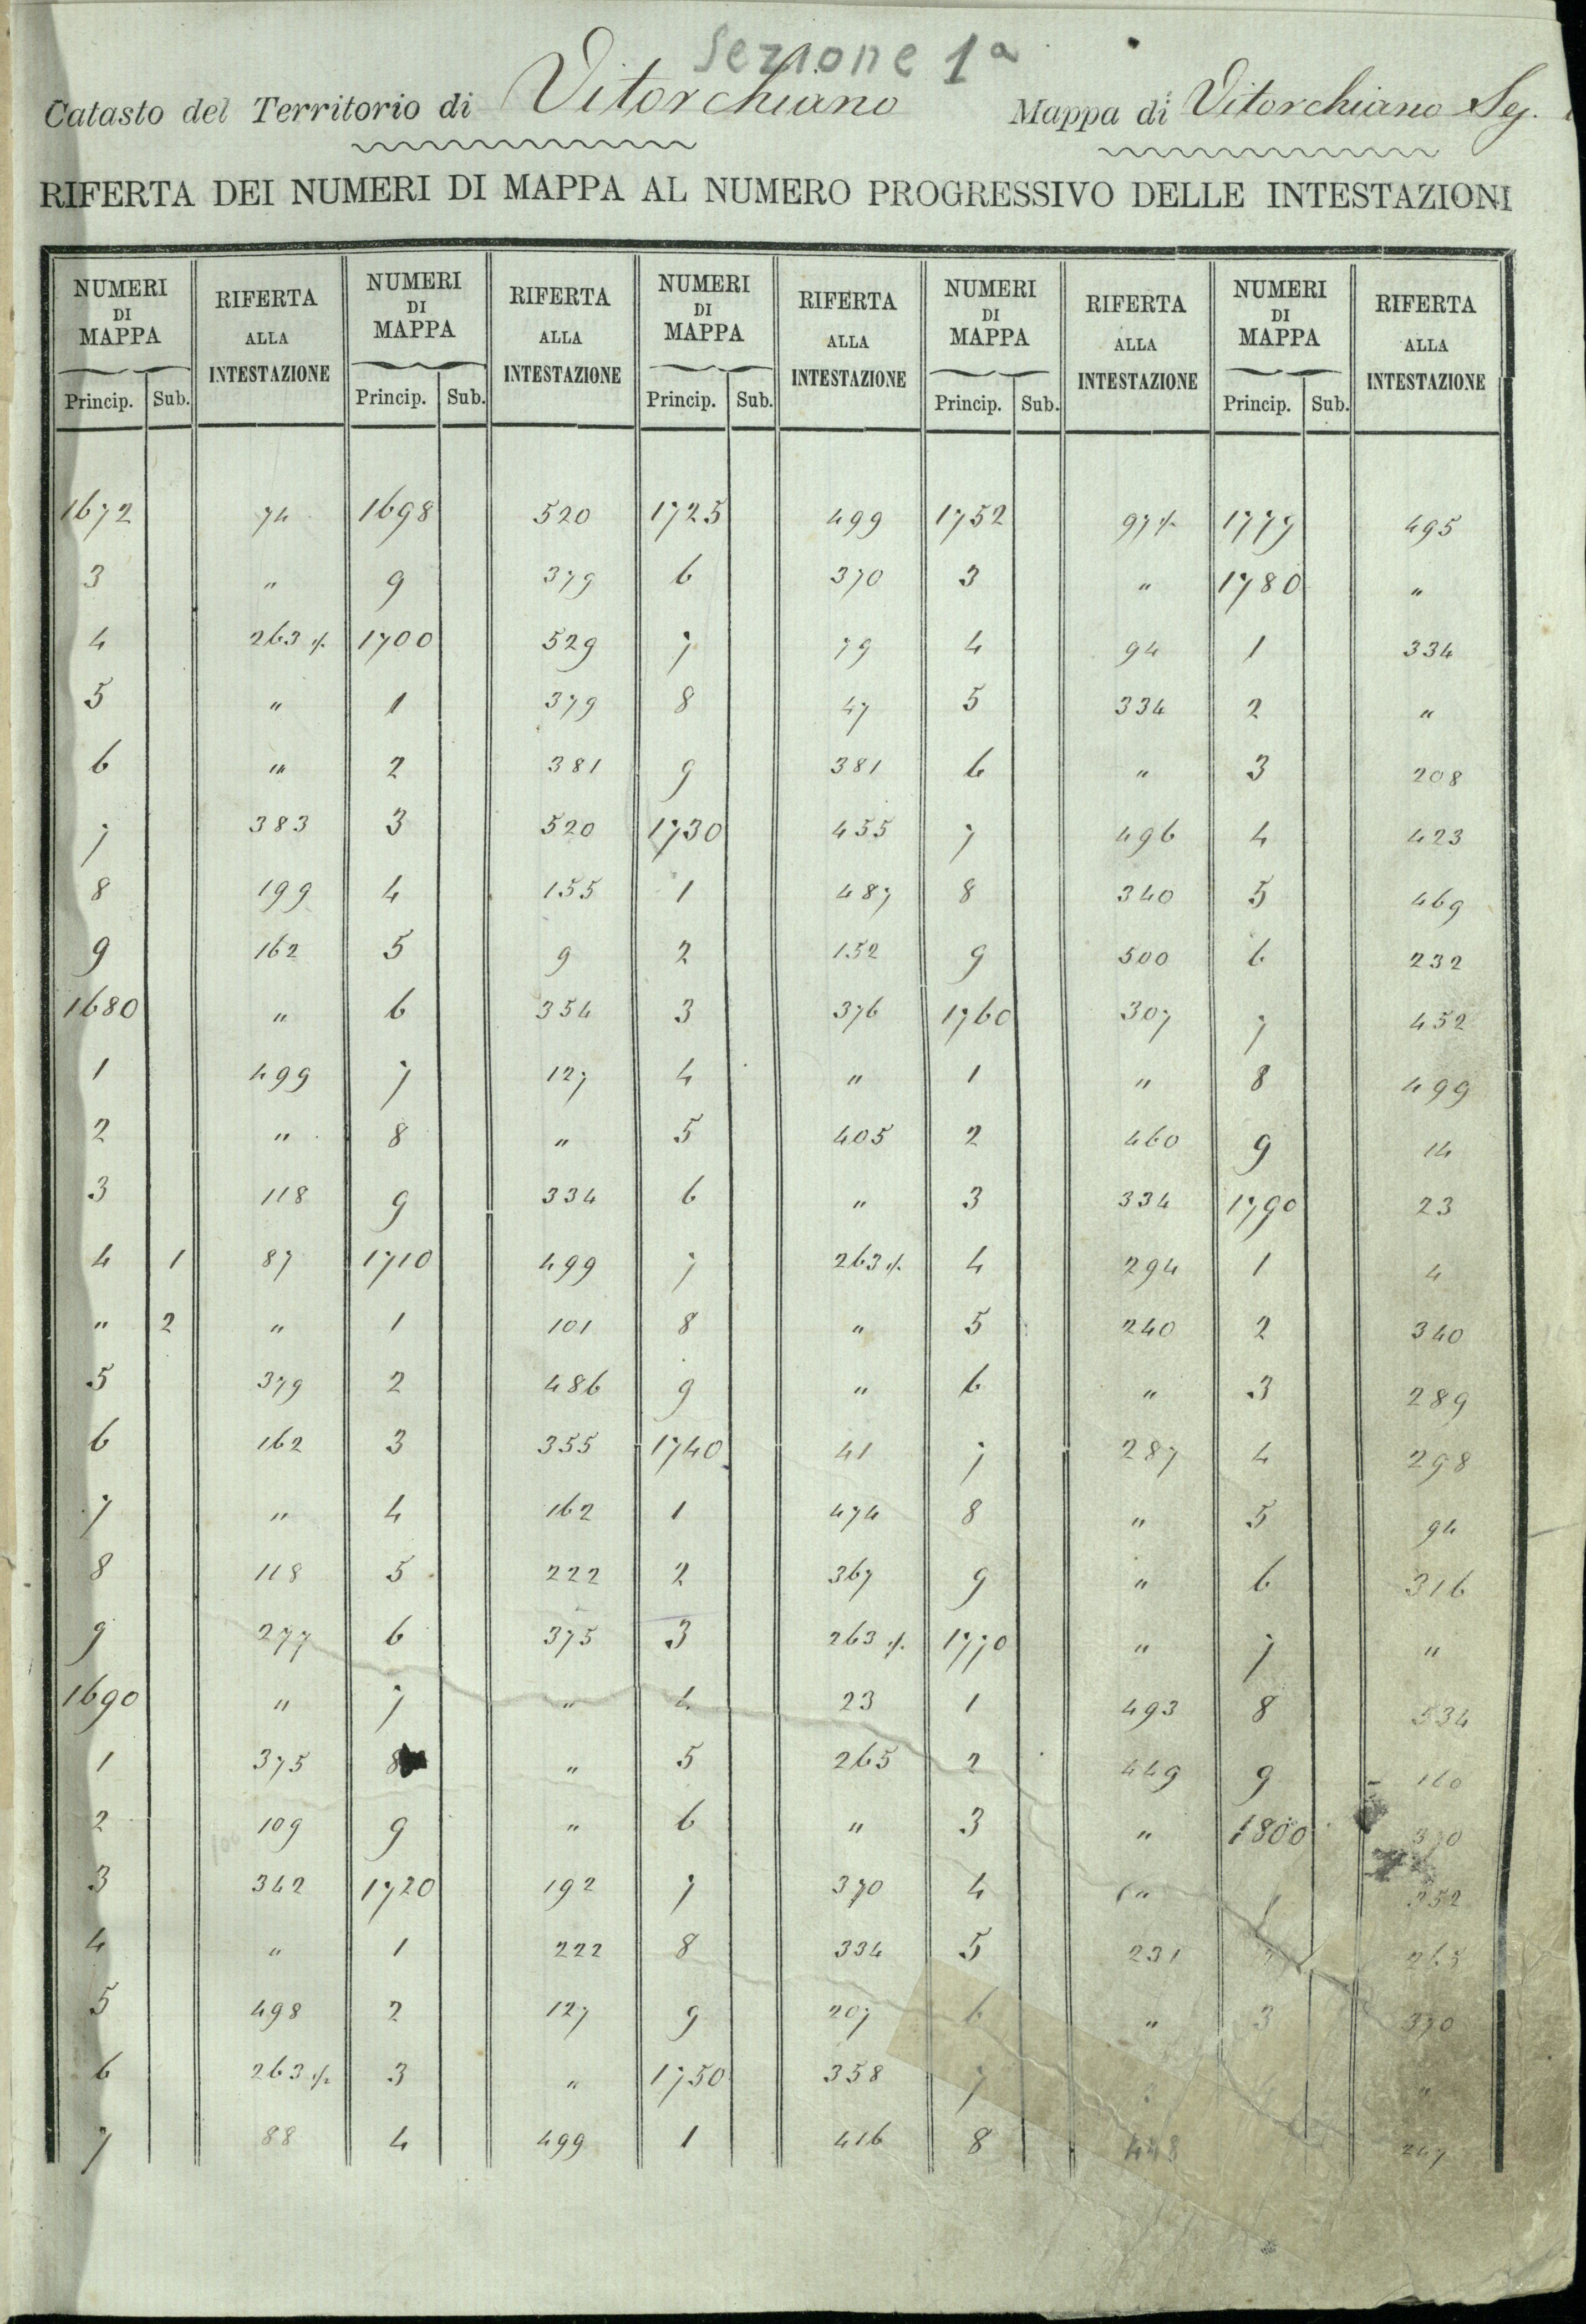 Sezione 1a
Catasto del Territorio di Vitorchiano Mappa di Vitorchiano Sez.
RIFERTA DEI NUMERI DI MAPPA AL NUMERO PROGRESSIVO DELLE INTESTAZIONI
NUMERI DI MAPPA RIFERTA ALLA INTESTAZIONE NUMERI DI MAPPA RIFERTA ALLA INTESTAZIONE NUMERI DI MAPPA RIFERTA ALLA INTESTAZIONE NUMERI DI MAPPA RIFERTA ALLA INTESTAZIONE NUMERI DI MAPPA RIFERTA ALLA INTESTAZIONE
Princip. Sub. Princip. Sub. Princip. Sub. Princip. Sub. Princip. Sub.
1672 74 1698 520 1725 499 1752 97 ./. 1779 495
3 " 9 379 6 370 3 " 1780 "
4 263 ./. 1700 529 7 79 4 94 1 334
5 " 1 379 8 47 5 334 2 "
6 " 2 381 9 381 6 " 3 208
7 383 3 520 1730 455 7 496 4 423
8 199 4 155 1 487 8 340 5 469
9 162 5 9 2 152 9 500 6 232
1680 " 6 354 3 376 1760 307 7 452
1 499 7 127 4 " 1 " 8 499
2 " 8 " 5 405 2 460 9 14
3 118 9 334 6 " 3 334 1790 23
4 1 87 1710 499 7 263 ./. 4 294 1 4
" 2 " 1 101 8 " 5 240 2 340
5 379 2 486 9 " 6 " 3 289
6 162 3 355 1740 41 7 287 4 298
7 " 4 162 1 474 8 " 5 94
8 118 5 222 2 367 9 " 6 316
9 277 6 375 3 263 ./. 1770 " 7 "
1690 " 7 " 4 23 1 493 8 534
1 375 8 " 5 265 2 449 9 160
2 109 9 " 6 " 3 " 1800 370
3 342 1720 192 7 370 4 " 1 352
4 " 1 222 8 334 5 231 265
5 498 2 127 9 207 6 " 3 370
6 263 ./. 3 " 1750 358 7 "
7 88 4 499 1 416 8 448